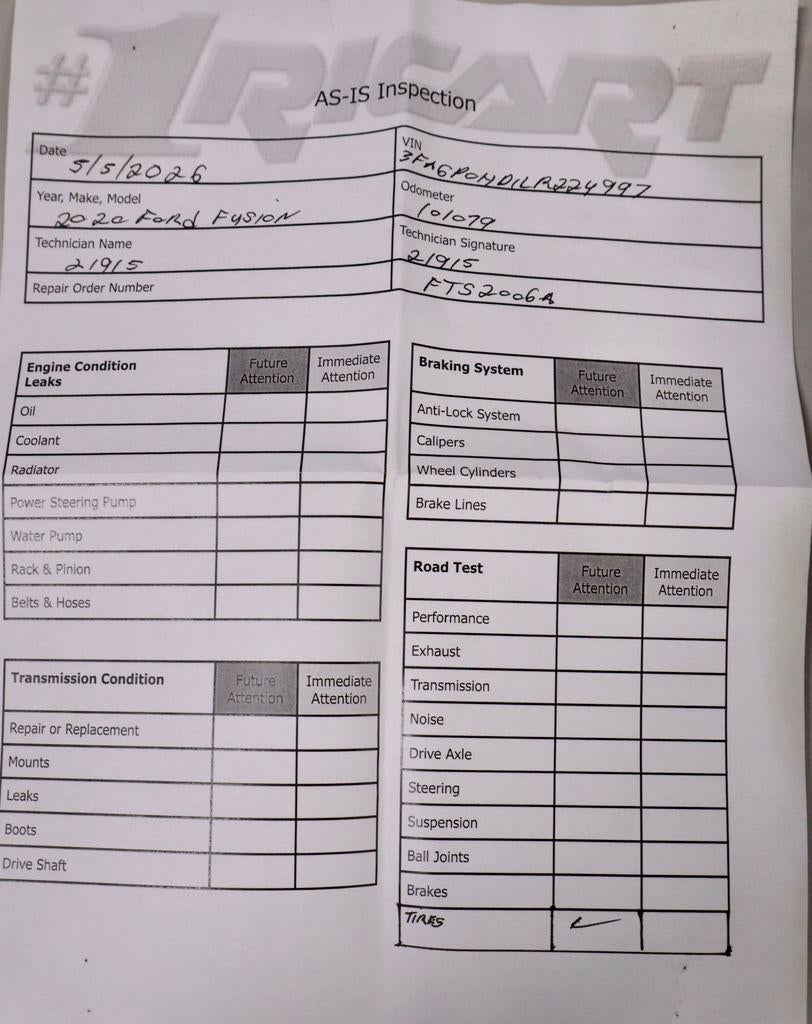 #1 RICART
AS-IS Inspection
Date
5/5/2026
VIN
3FA6P0HD1LR224997
Year, Make, Model
2020 FORD FUSION
Odometer
101079
Technician Name
21915
Technician Signature
21915
Repair Order Number
FTS2006A
Engine Condition
Leaks
Future
Attention
Immediate
Attention
Oil
Coolant
Radiator
Power Steering Pump
Water Pump
Rack & Pinion
Belts & Hoses
Transmission Condition
Future
Attention
Immediate
Attention
Repair or Replacement
Mounts
Leaks
Boots
Drive Shaft
Braking System
Future
Attention
Immediate
Attention
Anti-Lock System
Calipers
Wheel Cylinders
Brake Lines
Road Test
Future
Attention
Immediate
Attention
Performance
Exhaust
Transmission
Noise
Drive Axle
Steering
Suspension
Ball Joints
Brakes
TIRES ✓